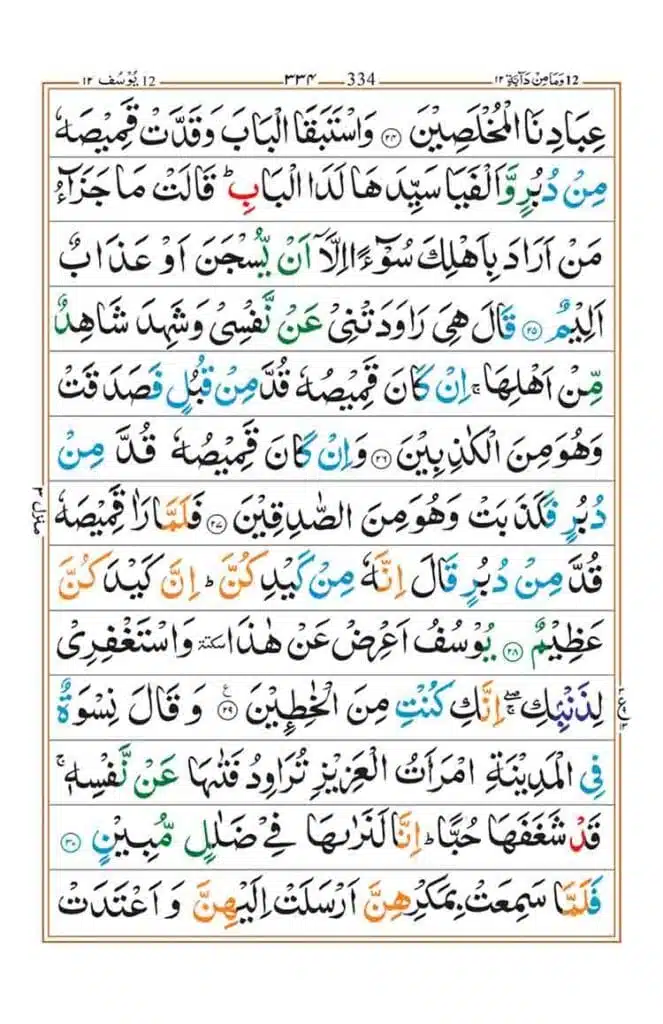 12 وَمَا مِنْ دَآبَّةٍ ١٢ 334 ٣٣٤ 12 يُوْسُف ١٢
عِبَادِنَا الْمُخْلَصِيْنَ ٢٤ وَاسْتَبَقَا الْبَابَ وَقَدَّتْ قَمِيْصَهٗ
مِنْ دُبُرٍ وَّاَلْفَيَا سَيِّدَهَا لَدَا الْبَابِؕ قَالَتْ مَا جَزَآءُ
مَنْ اَرَادَ بِاَهْلِكَ سُوْٓءًا اِلَّاۤ اَنْ يُّسْجَنَ اَوْ عَذَابٌ
اَلِيْمٌ ٢٥ قَالَ هِىَ رَاوَدَتْنِىْ عَنْ نَّفْسِىْ وَشَهِدَ شَاهِدٌ
مِّنْ اَهْلِهَاۚ اِنْ كَانَ قَمِيْصُهٗ قُدَّ مِنْ قُبُلٍ فَصَدَقَتْ
وَهُوَ مِنَ الْكٰذِبِيْنَ ٢٦ وَاِنْ كَانَ قَمِيْصُهٗ قُدَّ مِنْ
دُبُرٍ فَكَذَبَتْ وَهُوَ مِنَ الصّٰدِقِيْنَ ٢٧ فَلَمَّا رَاٰ قَمِيْصَهٗ
قُدَّ مِنْ دُبُرٍ قَالَ اِنَّهٗ مِنْ كَيْدِكُنَّؕ اِنَّ كَيْدَكُنَّ
عَظِيْمٌ ٢٨ يُوْسُفُ اَعْرِضْ عَنْ هٰذَا سكتة وَاسْتَغْفِرِىْ
لِذَنْۢبِكِۖۚ اِنَّكِ كُنْتِ مِنَ الْخٰطِـِٕيْنَ ٢٩ ع وَقَالَ نِسْوَةٌ
فِى الْمَدِيْنَةِ امْرَاَتُ الْعَزِيْزِ تُرَاوِدُ فَتٰٮهَا عَنْ نَّفْسِهٖۚ
قَدْ شَغَفَهَا حُبًّاؕ اِنَّا لَنَرٰٮهَا فِىْ ضَلٰلٍ مُّبِيْنٍ ٣٠
فَلَمَّا سَمِعَتْ بِمَكْرِهِنَّ اَرْسَلَتْ اِلَيْهِنَّ وَاَعْتَدَتْ
منزل ٣